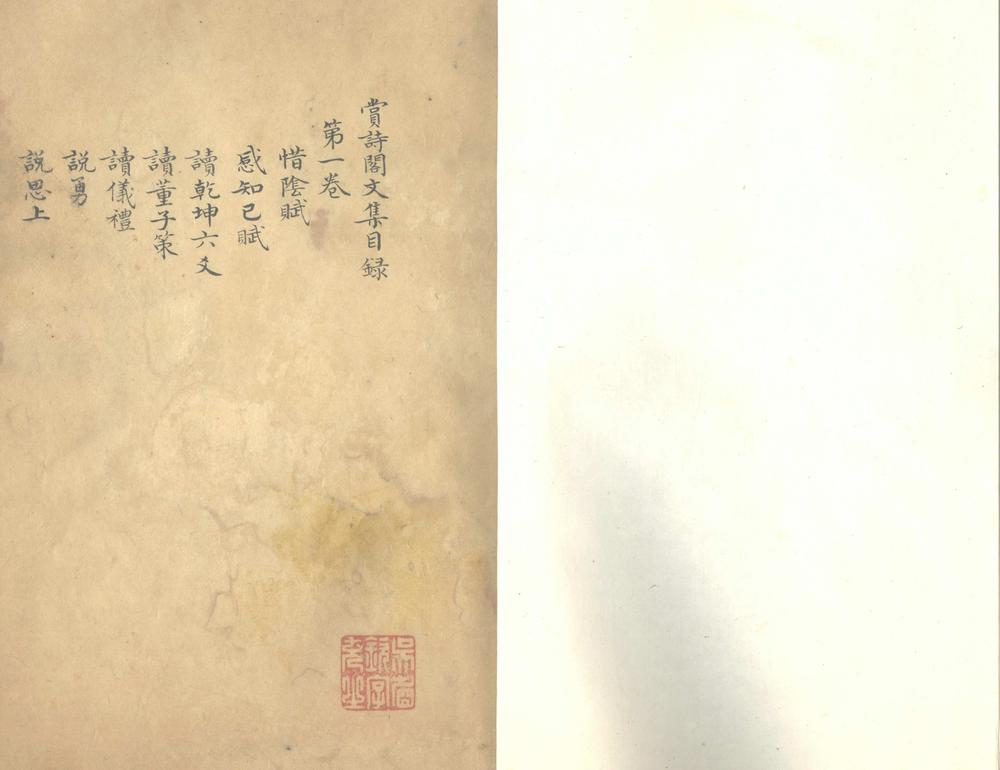 賞詩閣文集目録
第一卷
惜陰賦
感知已賦
讀乾坤六爻
讀董子策
讀儀禮
說勇
說思上